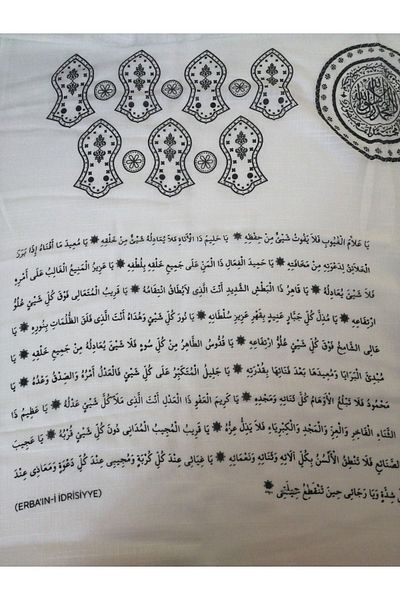 يَا عَلَّامَ الْغُيُوبِ فَلَا يَفُوتُ شَيْئٌ مِنْ حِفْظِهِ ✹ يَا حَلِيمَ ذَا الْأَنَاةِ فَلَا يُعَادِلُهُ شَيْئٌ مِنْ خَلْقِهِ ✹ يَا مُعِيدَ مَا أَفْنَاهُ إِذَا بَرَزَ
الْخَلَائِقُ لِدَعْوَتِهِ مِنْ مَخَافَتِهِ ✹ يَا حَمِيدَ الْفِعَالِ ذَا الْمَنِّ عَلَى جَمِيعِ خَلْقِهِ بِلُطْفِهِ ✹ يَا عَزِيزُ الْمَنِيعُ الْغَالِبُ عَلَى أَمْرِهِ
فَلَا شَيْئَ يُعَادِلُهُ ✹ يَا قَاهِرُ ذَا الْبَطْشِ الشَّدِيدِ أَنْتَ الَّذِي لَايُطَاقُ انْتِقَامُهُ ✹ يَا قَرِيبُ الْمُتَعَالِي فَوْقَ كُلِّ شَيْئٍ عُلُوُّ
ارْتِفَاعِهِ ✹ يَا مُذِلَّ كُلِّ جَبَّارٍ عَنِيدٍ بِقَهْرِ عَزِيزِ سُلْطَانِهِ ✹ يَا نُورَ كُلِّ شَيْئٍ وَهُدَاهُ أَنْتَ الَّذِي فَلَقَ الظُّلُمَاتِ بِنُورِهِ ✹ يَا
عَالِي الشَّامِخُ فَوْقَ كُلِّ شَيْئٍ عُلُوُّ ارْتِفَاعِهِ ✹ يَا قُدُّوسُ الطَّاهِرُ مِنْ كُلِّ سُوءٍ فَلَا شَيْئَ يُعَادِلُهُ مِنْ جَمِيعِ خَلْقِهِ ✹ يَا
مُبْدِئَ الْبَرَايَا وَمُعِيدَهَا بَعْدَ فَنَائِهَا بِقُدْرَتِهِ ✹ يَا جَلِيلُ الْمُتَكَبِّرُ عَلَى كُلِّ شَيْئٍ فَالْعَدْلُ أَمْرُهُ وَالصِّدْقُ وَعْدُهُ ✹ يَا
مَحْمُودُ فَلَا تَبْلُغُ الْأَوْهَامُ كُلَّ ثَنَائِهِ وَمَجْدِهِ ✹ يَا كَرِيمَ الْعَفْوِ ذَا الْعَدْلِ أَنْتَ الَّذِي مَلَأَ كُلَّ شَيْئٍ عَدْلُهُ ✹ يَا عَظِيمُ ذَا
الثَّنَاءِ الْفَاخِرِ وَالْعِزِّ وَالْمَجْدِ وَالْكِبْرِيَاءِ فَلَا يَذِلُّ عِزُّهُ ✹ يَا قَرِيبُ الْمُجِيبُ الْمُدَانِي دُونَ كُلِّ شَيْئٍ قُرْبُهُ ✹ يَا عَجِيبَ
الصَّنَائِعِ فَلَا تَنْطِقُ الْأَلْسُنُ بِكُلِّ آلَائِهِ وَثَنَائِهِ وَنَعْمَائِهِ ✹ يَا غِيَاثِي عِنْدَ كُلِّ كُرْبَةٍ وَمُجِيبِي عِنْدَ كُلِّ دَعْوَةٍ وَمَعَاذِي عِنْدَ
كُلِّ شِدَّةٍ وَيَا رَجَائِي حِينَ تَنْقَطِعُ حِيلَتِي ✹
(ERBA'IN-İ İDRİSİYYE)